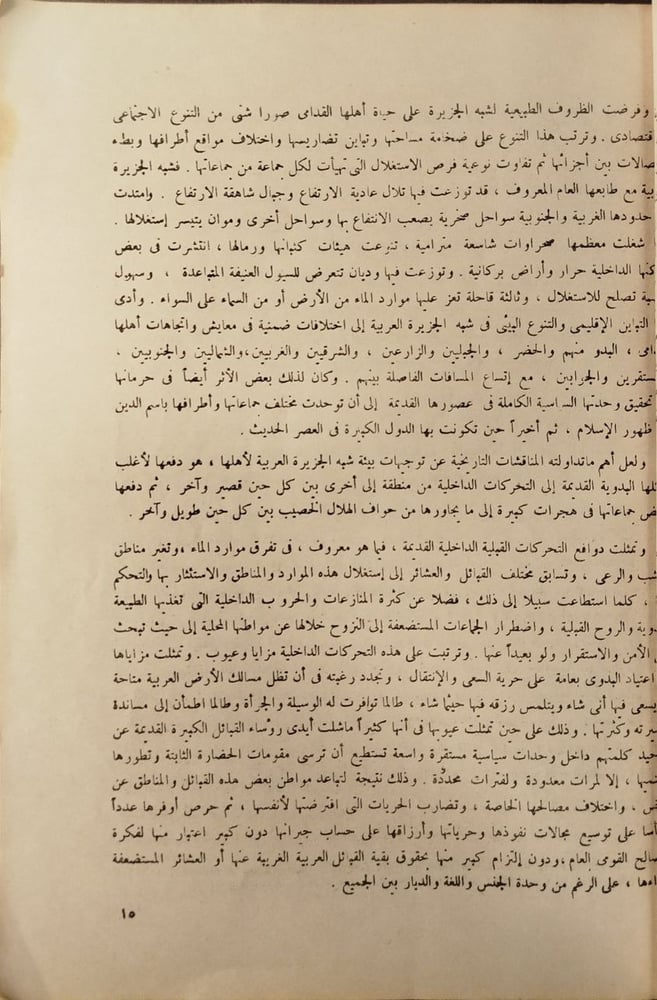 وفرضت الظروف الطبيعية لشبه الجزيرة على حياة أهلها القدامى صورا شتى من التنوع الاجتماعى
قتصادى . وترتب هذا التنوع على ضخامة مساحتها وتباين تضاريسها واختلاف مواقع أطرافها وبطء
صالات بين أجزائها ثم تفاوت نوعية فرص الاستغلال التى تهيأت لكل جماعة من جماعاتها . فشبه الجزيرة
بية مع طابعها العام المعروف ، قد توزعت فيها تلال عادية الارتفاع وجبال شاهقة الارتفاع . وامتدت
حدودها الغربية والجنوبية سواحل صخرية يصعب الانتفاع بها وسواحل أخرى وموان يتيسر إستغلالها .
شغلت معظمها صحراوات شاسعة مترامية ، تنوعت هيئات كثبانها ورمالها ، انتشرت فى بعض
كنها الداخلية حرار وأراض بركانية . وتوزعت فيها وديان تتعرض للسيول العنيفة المتباعدة ، وسهول
سبة تصلح للاستغلال ، وثالثة قاحلة تعز عليها موارد الماء من الأرض أو من السماء على السواء . وأدى
التباين الإقليمى والتنوع البيئى فى شبه الجزيرة العربية إلى اختلافات ضمنية فى معايش واتجاهات أهلها
امى ، البدو منهم والحضر ، والجبليين والزارعين ، والشرقيين والغربيين،والشماليين والجنوبيين ،
ستقرين والجوابين ، مع إتساع المسافات الفاصلة بينهم . وكان لذلك بعض الأثر أيضاً فى حرمانها
تحقيق وحدتها السياسية الكاملة فى عصورها القديمة إلى أن توحدت مختلف جماعاتها وأطرافها باسم الدين
ظهور الإسلام ، ثم أخيراً حين تكونت بها الدول الكبيرة فى العصر الحديث .
ولعل أهم ماتداولته المناقشات التاريخية عن توجيهات بيئة شبه الجزيرة العربية لأهلها ، هو دفعها لأغلب
ئلها البدوية القديمة إلى التحركات الداخلية من منطقة إلى أخرى بين كل حين قصير وآخر ، ثم دفعها
ض جماعاتها فى هجرات كبيرة إلى ما يجاورها من حواف الهلال الخصيب بين كل حين طويل وآخر .
وتمثلت دوافع التحركات القبلية الداخلية القديمة ، فيما هو معروف ، فى تفرق موارد الماء ،وتغير مناطق
شب والرعى ، وتسابق مختلف القبائل والعشائر إلى إستغلال هذه الموارد والمناطق والاستئثار بها والتحكم
، كلما استطاعت سبيلا إلى ذلك ، فضلا عن كثرة المنازعات والحروب الداخلية التى تغذيها الطبيعة
دوية والروح القبلية ، واضطرار الجماعات المستضعفة إلى النزوح خلالها عن مواطنها المحلية إلى حيث تبحث
الأمن والاستقرار ولو بعيداً عنها . وترتبت على هذه التحركات الداخلية مزايا وعيوب . وتمثلت مزاياها
اعتياد البدوى بعامة على حرية السعى والإنتقال ، وتجدد رغبته فى أن تظل مسالك الأرض العربية متاحة
يسعى فيها أنى شاء ويتلمس رزقه فيها حيثما شاء ، طالما توافرت له الوسيلة والجرأة وطالما اطمأن إلى مساندة
يرته وكثرتها . وذلك على حين تمثلت عيوبها فى أنها كثيراً ماشلت أيدى رؤساء القبائل الكبيرة القديمة عن
حيد كلمتهم داخل وحدات سياسية مستقرة واسعة تستطيع أن ترسى مقومات الحضارة الثابتة وتطورها
ميها ، إلا لمرات معدودة ولفترات محددة . وذلك نتيجة لتباعد مواطن بعض هذه القبائل والمناطق عن
ض ، واختلاف مصالحها الخاصة ، وتضارب الحريات التى افترضتها لأنفسها ، ثم حرص أوفرها عدداً
أسا على توسيع مجالات نفوذها وحرياتها وأرزاقها على حساب جيرانها دون كبير اعتبار منها لفكرة
صالح القومى العام ،ودون إلتزام كبير منها بحقوق بقية القبائل العربية الغريبة عنها أو العشائر المستضعفة
اءها ، على الرغم من وحدة الجنس واللغة والديار بين الجميع .
١٥